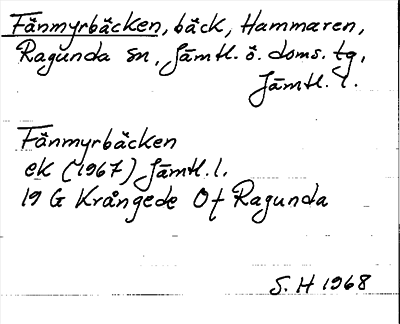 Fänmyrbäcken, bäck, Hammaren,
Ragunda sn, Jämtl. ö. doms. tg,
Jämtl. l.
Fänmyrbäcken
ek (1967) Jämtl. l.
19 G Krångede Of Ragunda
S. H 1968